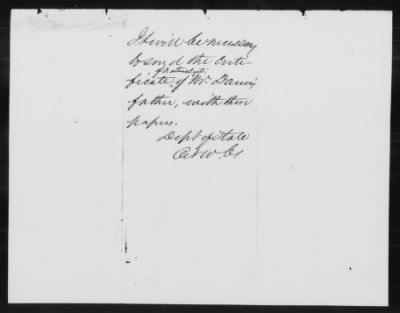 It will be necessary
to send the Certi-
of naturalizat
ficate of Mr. Davis
father, with these
papers.
Dept of State